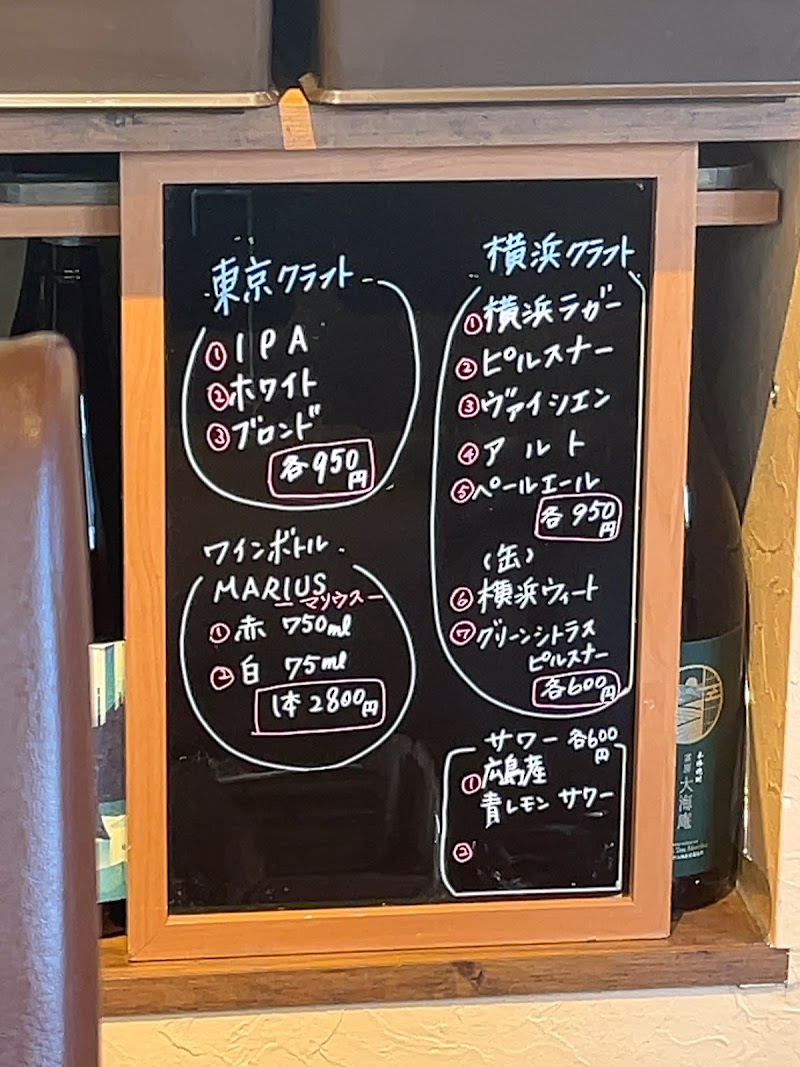 東京クラフト
① IPA
② ホワイト
③ ブロンド
各950円
ワインボトル
MARIUS
マリウス
① 赤 750ml
② 白 75ml
1本2800円
横浜クラフト
① 横浜ラガー
② ピルスナー
③ ヴァイシエン
④ アルト
⑤ ペールエール
各950円
(缶)
⑥ 横浜ウィート
⑦ グリーンシトラス
ピルスナー
各600円
サワー 各600円
① 広島産
青レモンサワー
②
本格焼酎
大海庵